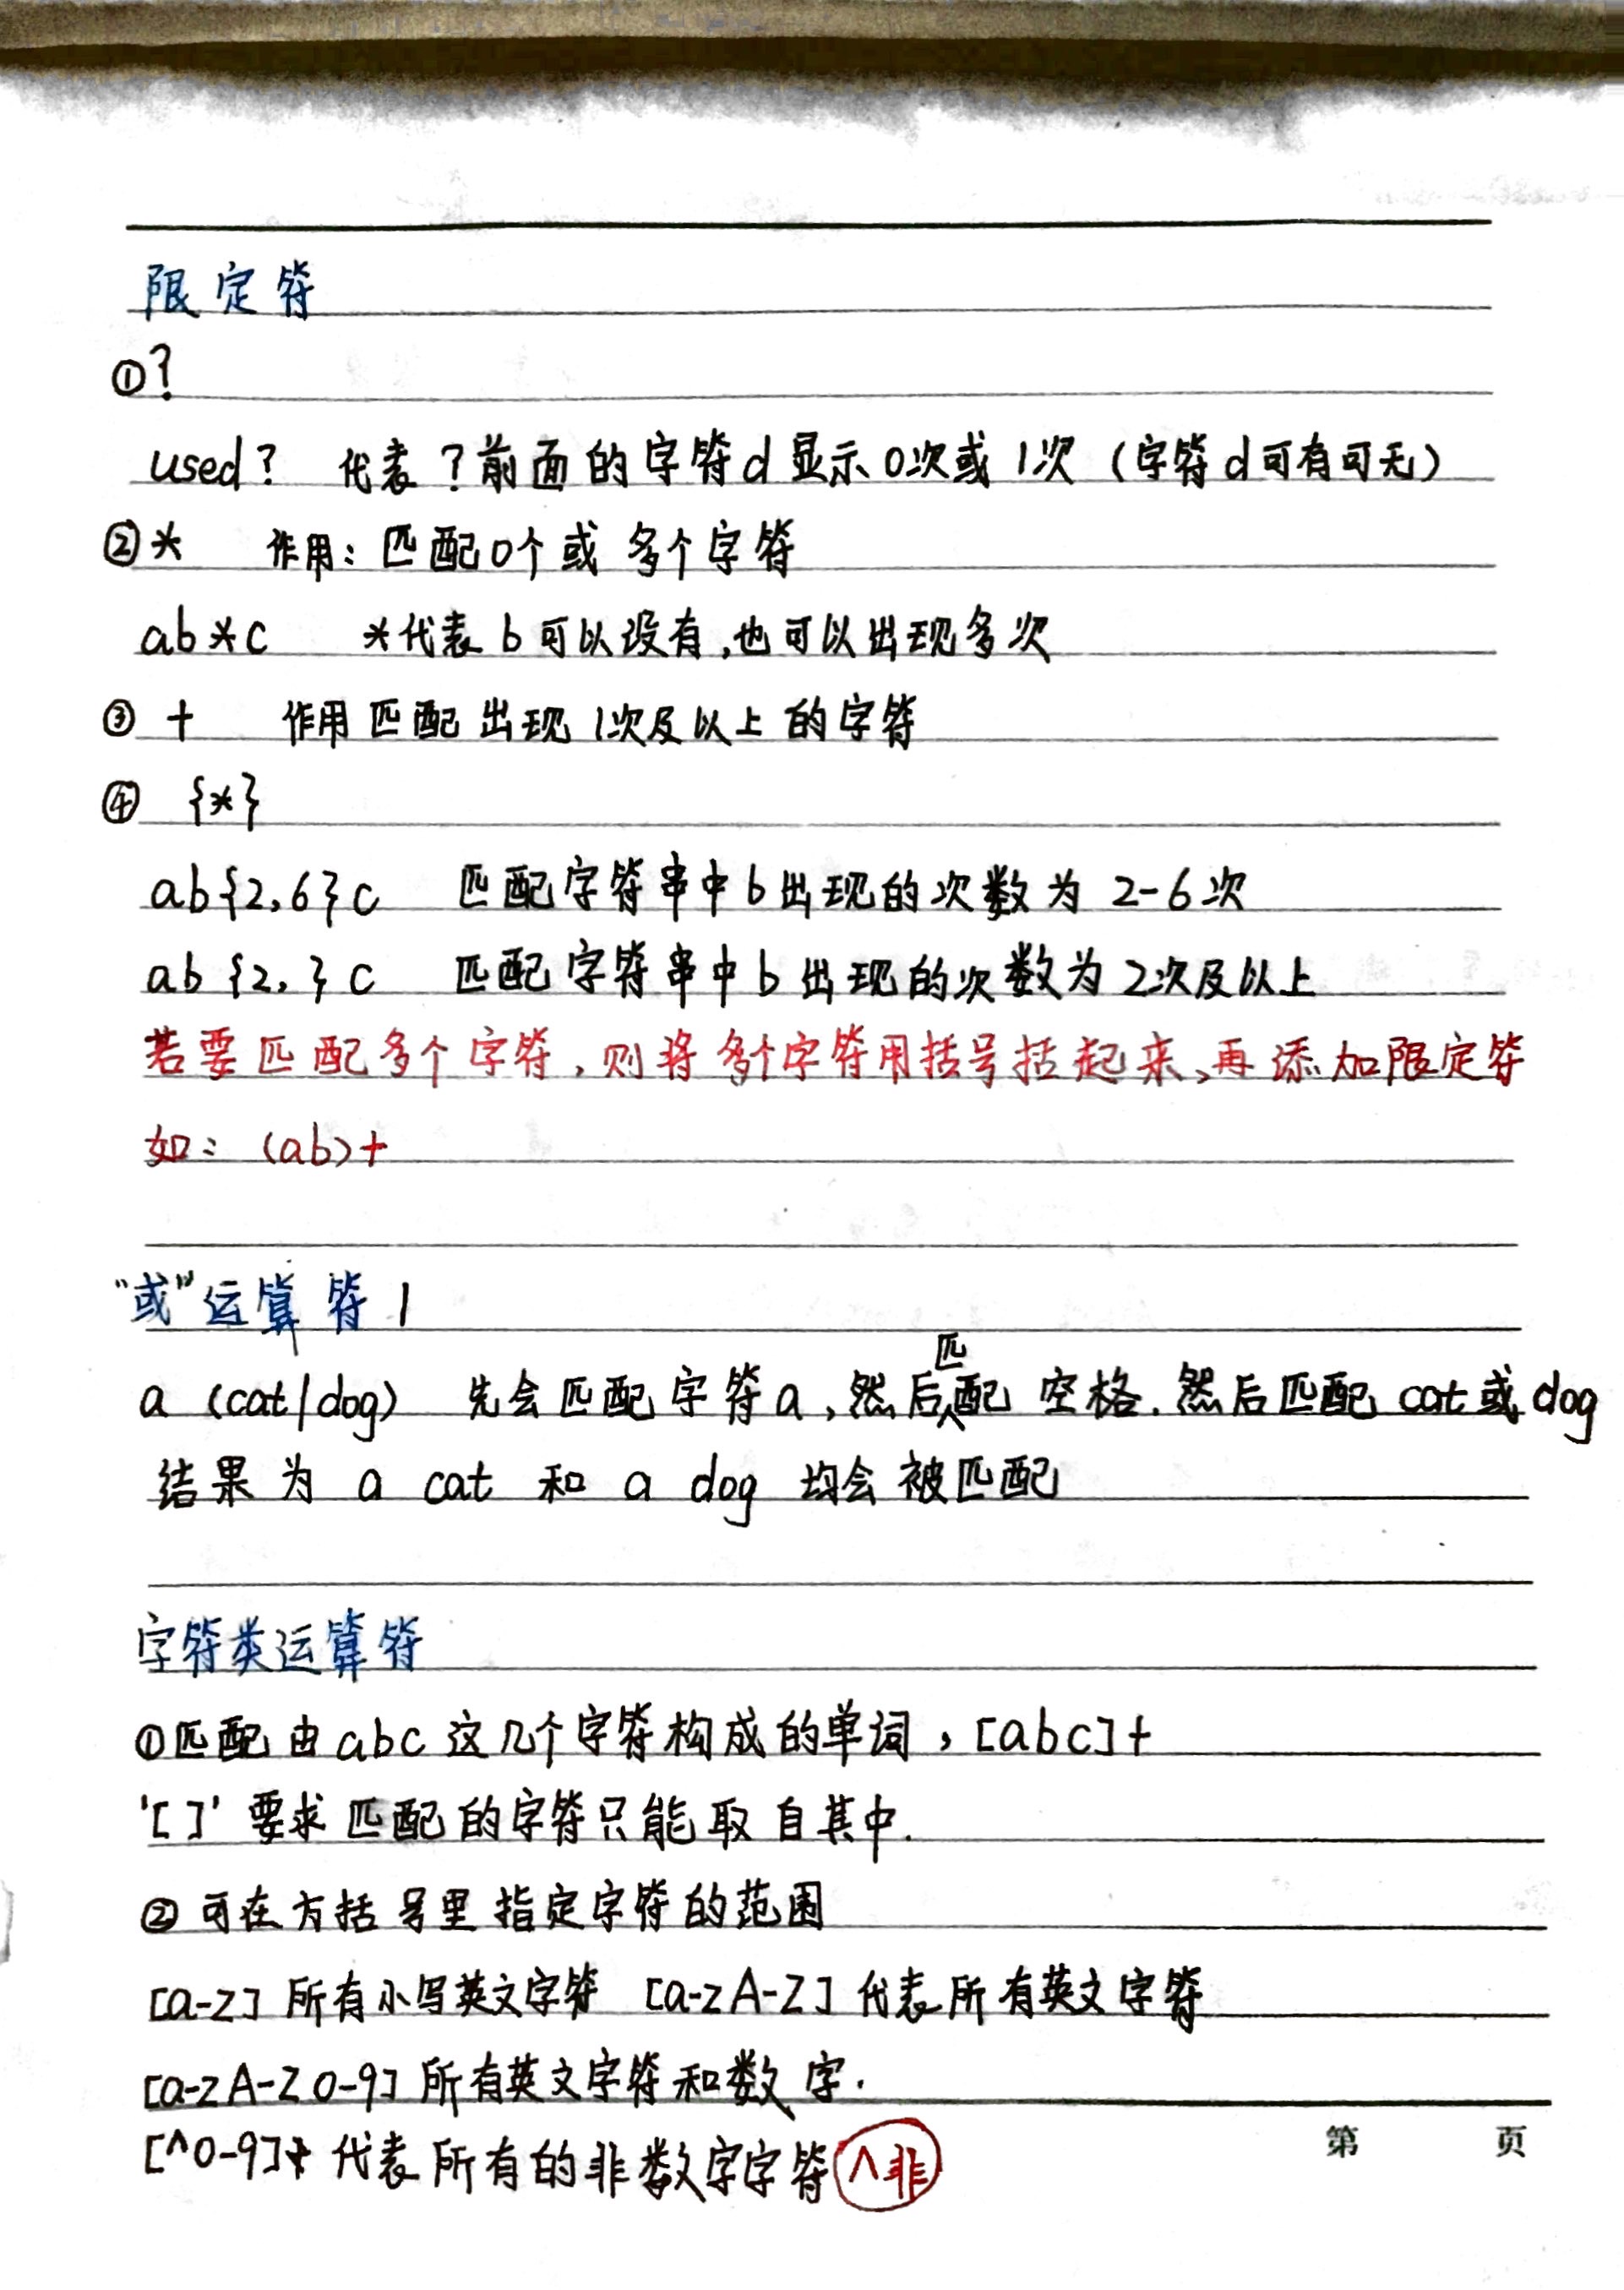 限定符
①?
used? 代表?前面的字符d显示0次或1次(字符d可有可无)
②* 作用:匹配0个或多个字符
ab*c *代表b可以没有,也可以出现多次
③ + 作用 匹配出现1次及以上的字符
④ {*}
ab{2,6}c 匹配字符串中b出现的次数为 2-6次
ab{2,}c 匹配字符串中b出现的次数为2次及以上
若要匹配多个字符,则将多个字符用括号括起来,再添加限定符
如: (ab)+
"或"运算符 |
a (cat|dog) 先会匹配字符a,然后匹配 空格.然后匹配 cat或dog
结果为 a cat 和 a dog 均会被匹配
字符类运算符
①匹配由abc这几个字符构成的单词,[abc]+
'[]'要求匹配的字符只能取自其中.
②可在方括号里指定字符的范围
[a-z]所有小写英文字符 [a-zA-Z]代表所有英文字符
[a-zA-Z0-9]所有英文字符和数字.
[^0-9]+ 代表所有的非数字字符 ^非
第 页